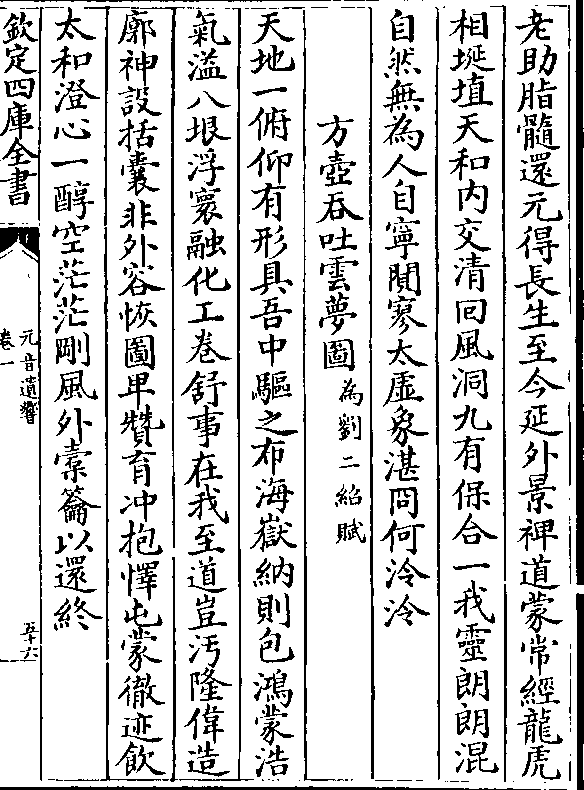 老助脂髓還元得長生至今延外景裨道蒙常經龍虎
相埏埴天和内交清囘風洞九有保合一我靈朗朗混
自然無為人自寧閴寥太虛象湛冏何泠泠
方壺吞吐雲夢圖為劉二紹賦
天地一俯仰有形具吾中驅之布海嶽納則包鴻蒙浩
氣溢八垠浮寰融化工卷舒事在我至道豈汚隆偉造
廓神設括囊非外容恢圖毕贊育冲抱懌屯蒙徹迹飲
太和澄心一醇空茫茫剛風外橐籥以還終
欽定四庫全書
元音遺響
卷一
五十六